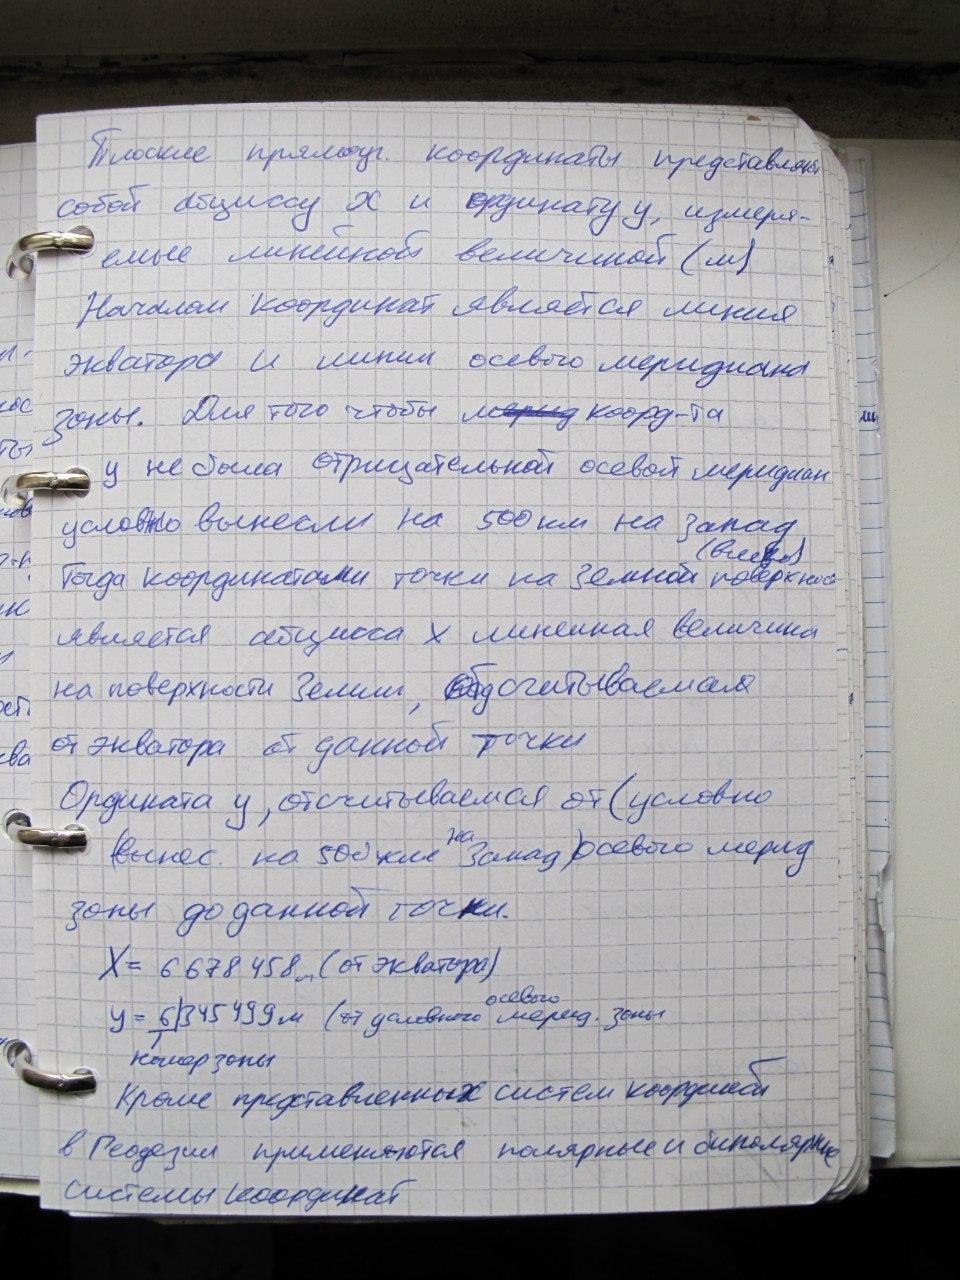 Плоские прямоуг. координаты представляют
собой абциссу X и ординату y, измеря-
емые линейной величиной (м)
Началом координат является линия
экватора и линии осевого меридиана
зоны. Для того чтобы мерид коорд-та
y не была отрицательной осевой меридиан
условно вынесли на 500 км на запад
(влево)
Тогда координатами точки на земной поверхнос
является абцисса X линейная величина
на поверхности Земли, отсчитываемая
от экватора от данной точки
Ордината y, отсчитываемая от (условно
вынес. на 500 км на запад) осевого мерид
зоны до данной точки.
X = 6 678 458 м (от экватора)
y = 6|345 499 м (от условного осевого мерид. зоны
номер зоны
Кроме представленных систем координат
в Геодезии применяются полярные и биполярные
системы координат